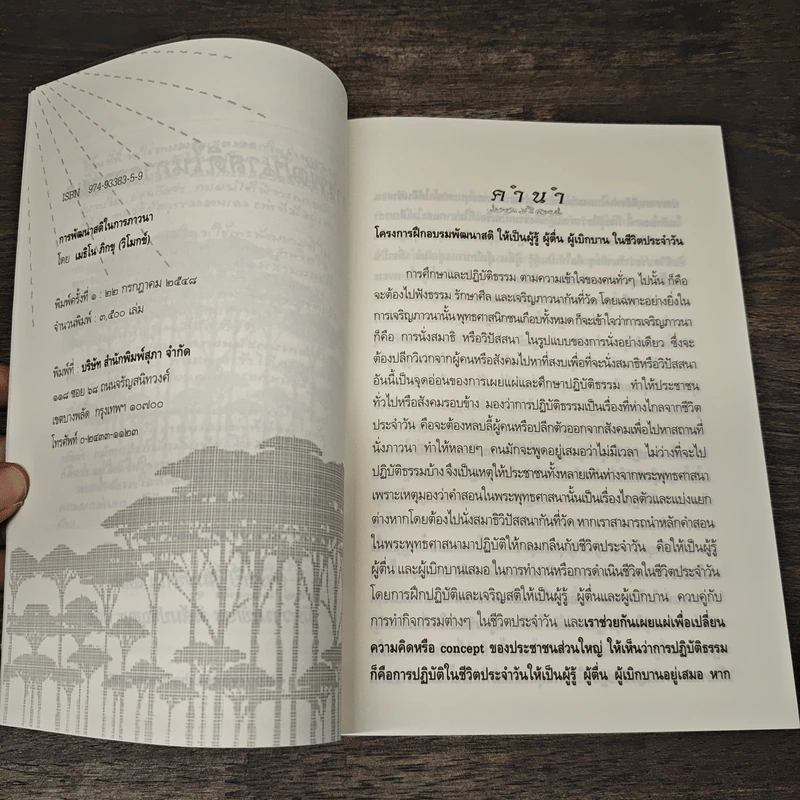 ISBN 974-93383-5-9
การพัฒนาสติในการภาวนา
โดย เมธิโน ภิกขุ (วิโมกข์)
พิมพ์ครั้งที่ ๑ : ๒๒ กรกฎาคม ๒๕๔๘
จำนวนพิมพ์ : ๓,๕๐๐ เล่ม
พิมพ์ที่ : บริษัท สำนักพิมพ์สุภา จำกัด
๑๑๘ ซอย ๖๘ ถนนจรัญสนิทวงศ์
เขตบางพลัด กรุงเทพฯ ๑๐๗๐๐
โทรศัพท์ ๐-๒๔๓๓-๑๑๒๓
คำนำ
โครงการฝึกอบรมพัฒนาสติ ให้เป็นผู้รู้ ผู้ตื่น ผู้เบิกบาน ในชีวิตประจำวัน
การศึกษาและปฏิบัติธรรม ตามความเข้าใจของคนทั่วๆ ไปนั้น ก็คือ
จะต้องไปฟังธรรม รักษาศีล และเจริญภาวนากันที่วัด โดยเฉพาะอย่างยิ่งใน
การเจริญภาวนานั้น พุทธศาสนิกชนเกือบทั้งหมด ก็จะเข้าใจว่าการเจริญภาวนา
ก็คือ การนั่งสมาธิ หรือวิปัสสนา ในรูปแบบของการนั่งอย่างเดียว ซึ่งจะ
ต้องปลีกวิเวกจากผู้คนหรือสังคมไปหาที่สงบเพื่อที่จะนั่งสมาธิหรือวิปัสสนา
อันนี้เป็นจุดอ่อนของการเผยแผ่และศึกษาปฏิบัติธรรม ทำให้ประชาชน
ทั่วไปหรือสังคมรอบข้าง มองว่าการปฏิบัติธรรมเป็นเรื่องที่ห่างไกลจากชีวิต
ประจำวัน คือจะต้องหลบลี้ผู้คนหรือปลีกตัวออกจากสังคมเพื่อไปหาสถานที่
นั่งภาวนา ทำให้หลายๆ คนมักจะพูดอยู่เสมอว่าไม่มีเวลา ไม่ว่างที่จะไป
ปฏิบัติธรรมบ้าง จึงเป็นเหตุให้ประชาชนทั้งหลายเหินห่างจากพระพุทธศาสนา
เพราะเหตุมองว่าคำสอนในพระพุทธศาสนานั้นเป็นเรื่องไกลตัวและแบ่งแยก
ต่างหากโดยต้องไปนั่งสมาธิวิปัสสนากันที่วัด หากเราสามารถนำหลักคำสอน
ในพระพุทธศาสนามาปฏิบัติให้กลมกลืนกับชีวิตประจำวัน คือให้เป็นผู้รู้
ผู้ตื่น และผู้เบิกบานเสมอ ในการทำงานหรือการดำเนินชีวิตในชีวิตประจำวัน
โดยการฝึกปฏิบัติและเจริญสติให้เป็นผู้รู้ ผู้ตื่นและผู้เบิกบาน ควบคู่กับ
การทำกิจกรรมต่างๆ ในชีวิตประจำวัน และเราช่วยกันเผยแผ่เพื่อเปลี่ยน
ความคิดหรือ concept ของประชาชนส่วนใหญ่ ให้เห็นว่าการปฏิบัติธรรม
ก็คือการปฏิบัติในชีวิตประจำวันให้เป็นผู้รู้ ผู้ตื่น ผู้เบิกบานอยู่เสมอ หาก